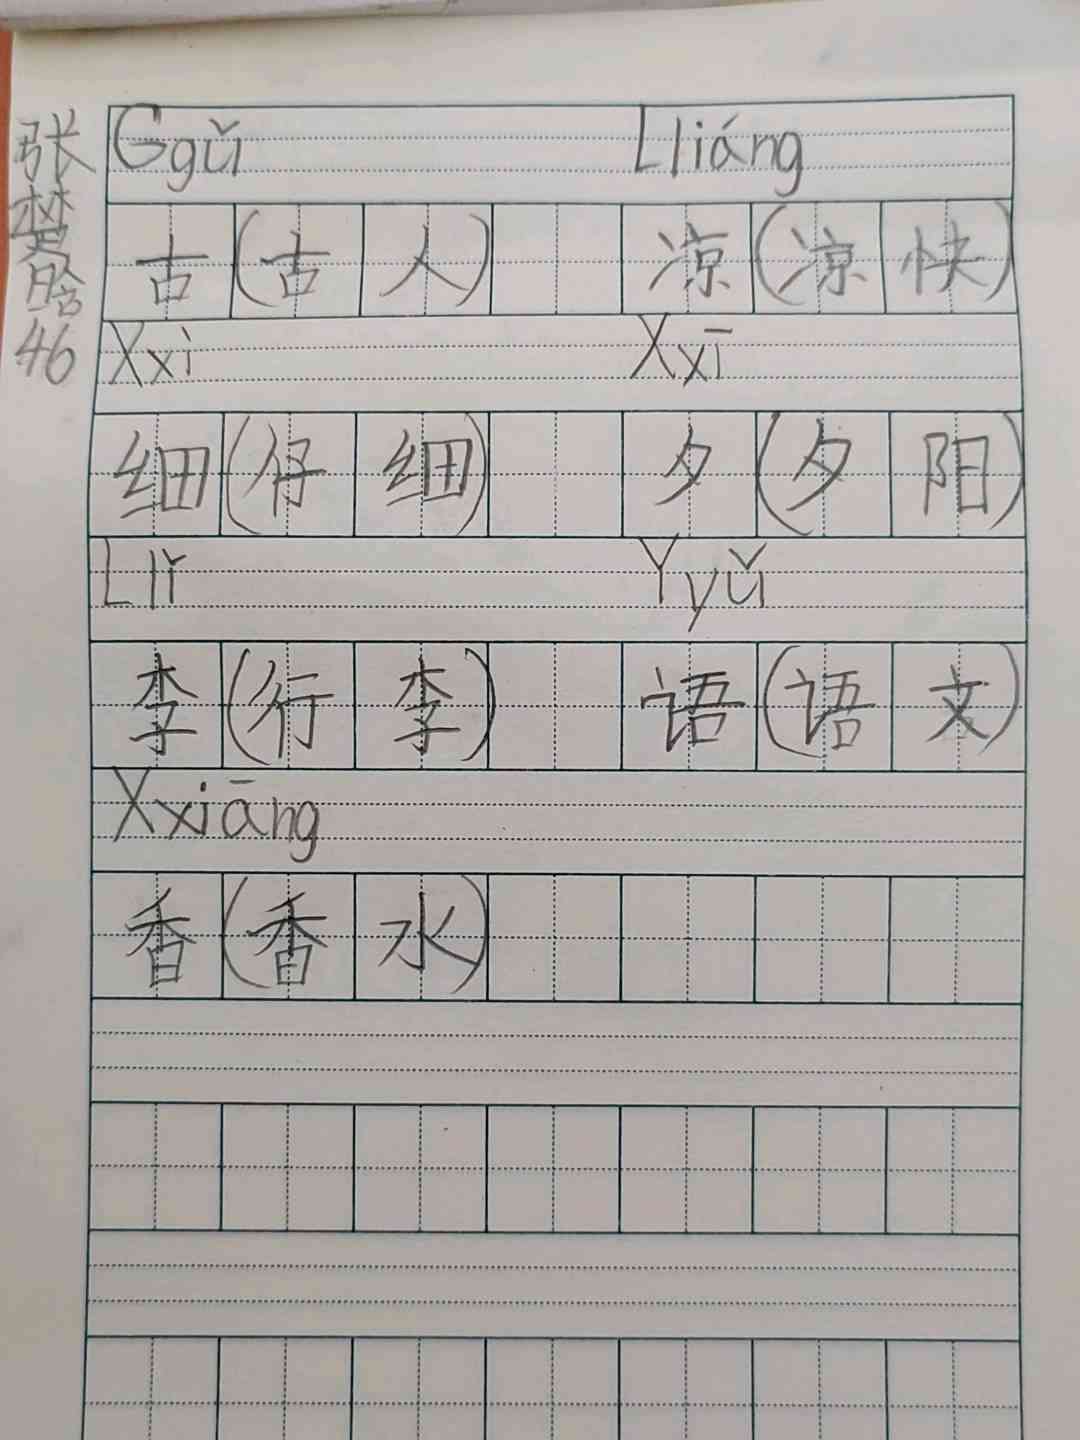 张楚晗46
Ggǔ Lliáng
古(古人) 凉(凉快)
Xxì Xxī
细(仔细) 夕(夕阳)
Llǐ Yyǔ
李(行李) 语(语文)
Xxiāng
香(香水)